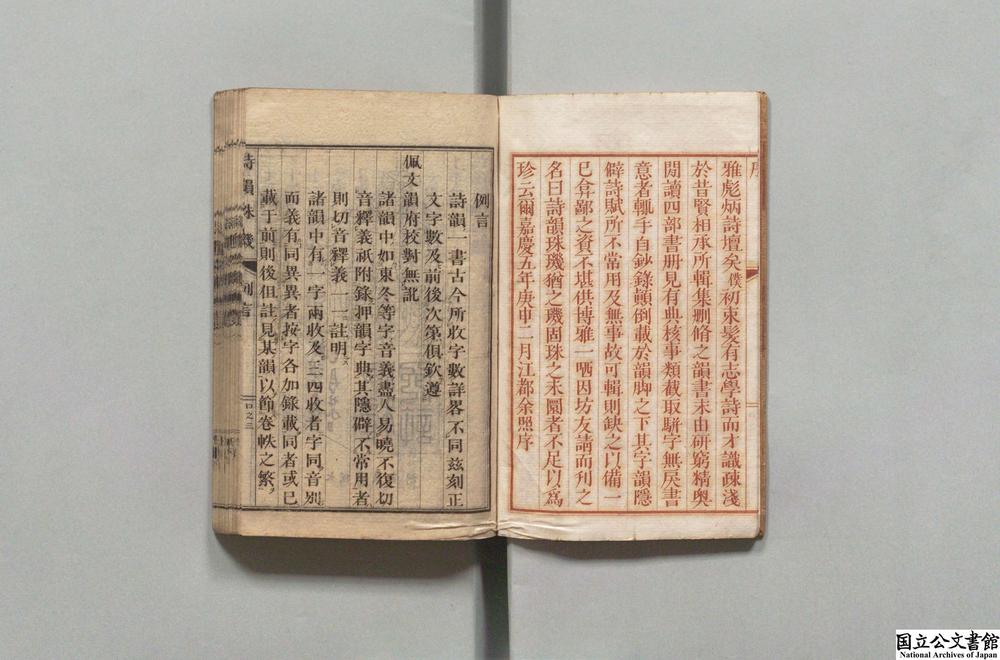 雅彪炳詩壇矣僕初束髮有志學詩而才識疎淺
於昔賢相承所輯集刪脩之韻書未由研窮精奧
閒讀四部書册見有典核事類截取騈字無戾書
意者輒手自鈔錄顚倒載於韻脚之下其字韻隱
僻詩賦所不常用及無事故可輯則缺之以備一
已弇鄙之資不堪供博雅一哂因坊友請而刋之
名曰詩韻珠璣猶之璣固珠之未圜者不足以爲
珍云爾嘉慶五年庚申二月江都余照序
例言
詩韻一書古今所收字數詳畧不同兹刻正
文字數及前後次第俱欽遵
佩文韻府校對無訛
諸韻中如東冬等字音義盡人易曉不復切
音釋義祇附錄押韻字典其隱僻不常用者
則切音釋義一一註明
諸韻中有一字兩收及三四收者字同音別
而義有同異異者按字各加錄載同者或已
載于前則後但註見某韻以節卷帙之繁
詩韻珠璣
例言
口之三
国立公文書館
National Archives of Japan